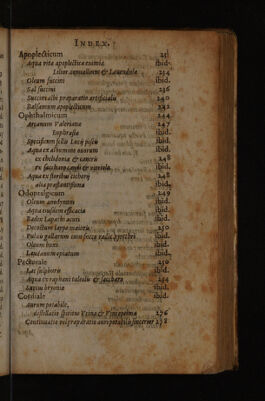 INDEX.
Apoplecticum 231
Aqua vitæ apoplectica eximia ibid.
Lilior. convallium & Lavendulæ 234
Oleum succini ibid.
Sal succini 236
Succini albi præparatio artificialis 240
Balsamum apoplecticum 242
Ophthalmicum 244
Arcanum Valeriana 247
Euphrasiæ ibid.
Specificum fellis Lucij piscis ibid.
Aqua ex albumine ovorum ibid.
ex chelidonia & cancris 248
ex saccharo candi & vitriolo ibid.
Aqua ex floribus cichorij 248
alia præstantissima ibid.
Odontalgicum 249
Oleum anodynum ibid.
Aqua eiusdem efficaciæ ibid.
Radix Lapathi acuti ibid.
Decoctum Lappæ maioris 250
Pulvis gallarum cum succo radic. pyrethri ibid.
Oleum buxi ibid.
Laudanum opiatum ibid.
Pectorale 250
Lac sulphuris ibid.
Aqua ex raphani taleolis & saccharo 254
bryoniæ ibid.
Cordiale ibid.
Aurum potabile, ibid.
destillatio spiritus Vrinæ & Vini optima 276
Continuatio vel præparatio auri potabilis sincerior 278